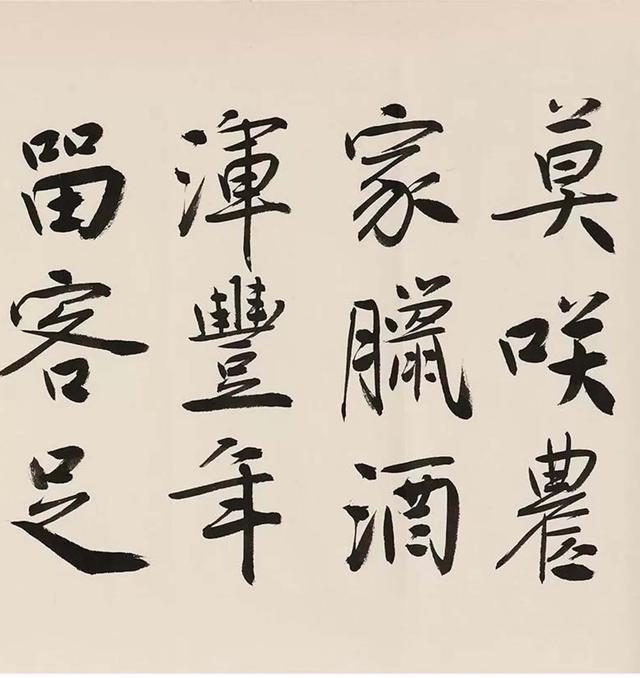 莫咲農
家臘酒
渾豐年
留客足